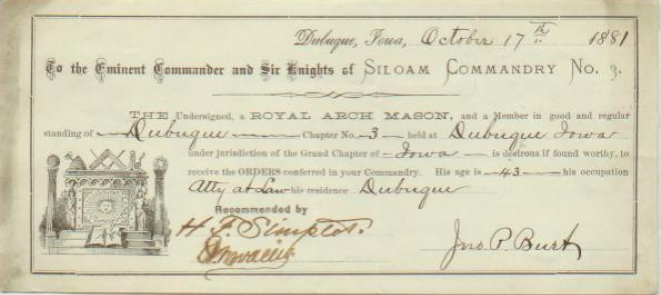 Dubuque, Iowa, October 17th 1881
To the Eminent Commander and Sir Knights of SILOAM COMMANDRY No. 3.
THE Undersigned, a ROYAL ARCH MASON, and a Member in good and regular
standing of Dubuque Chapter No. 3 held at Dubuque Iowa
under jurisdiction of the Grand Chapter of Iowa is desirous if found worthy, to
receive the ORDERS conferred in your Commandry. His age is 43 his occupation
Atty at Law his residence Dubuque
Recommended by
H. F.
Jno. P. Burt